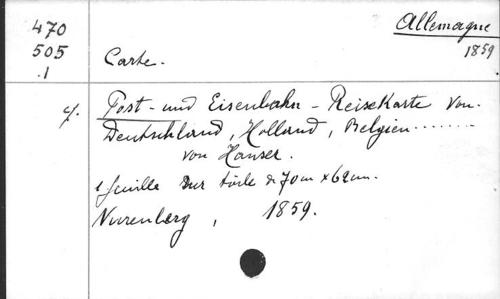 470
505
.1
Allemagne
1859
Carte.
Post- und Eisenbahn - ReiseKarte von
Deutschland, Holland, Belgien........
von Hanser.
1 feuille sur toile de 70cm x 62cm.
Nurenberg, 1859.